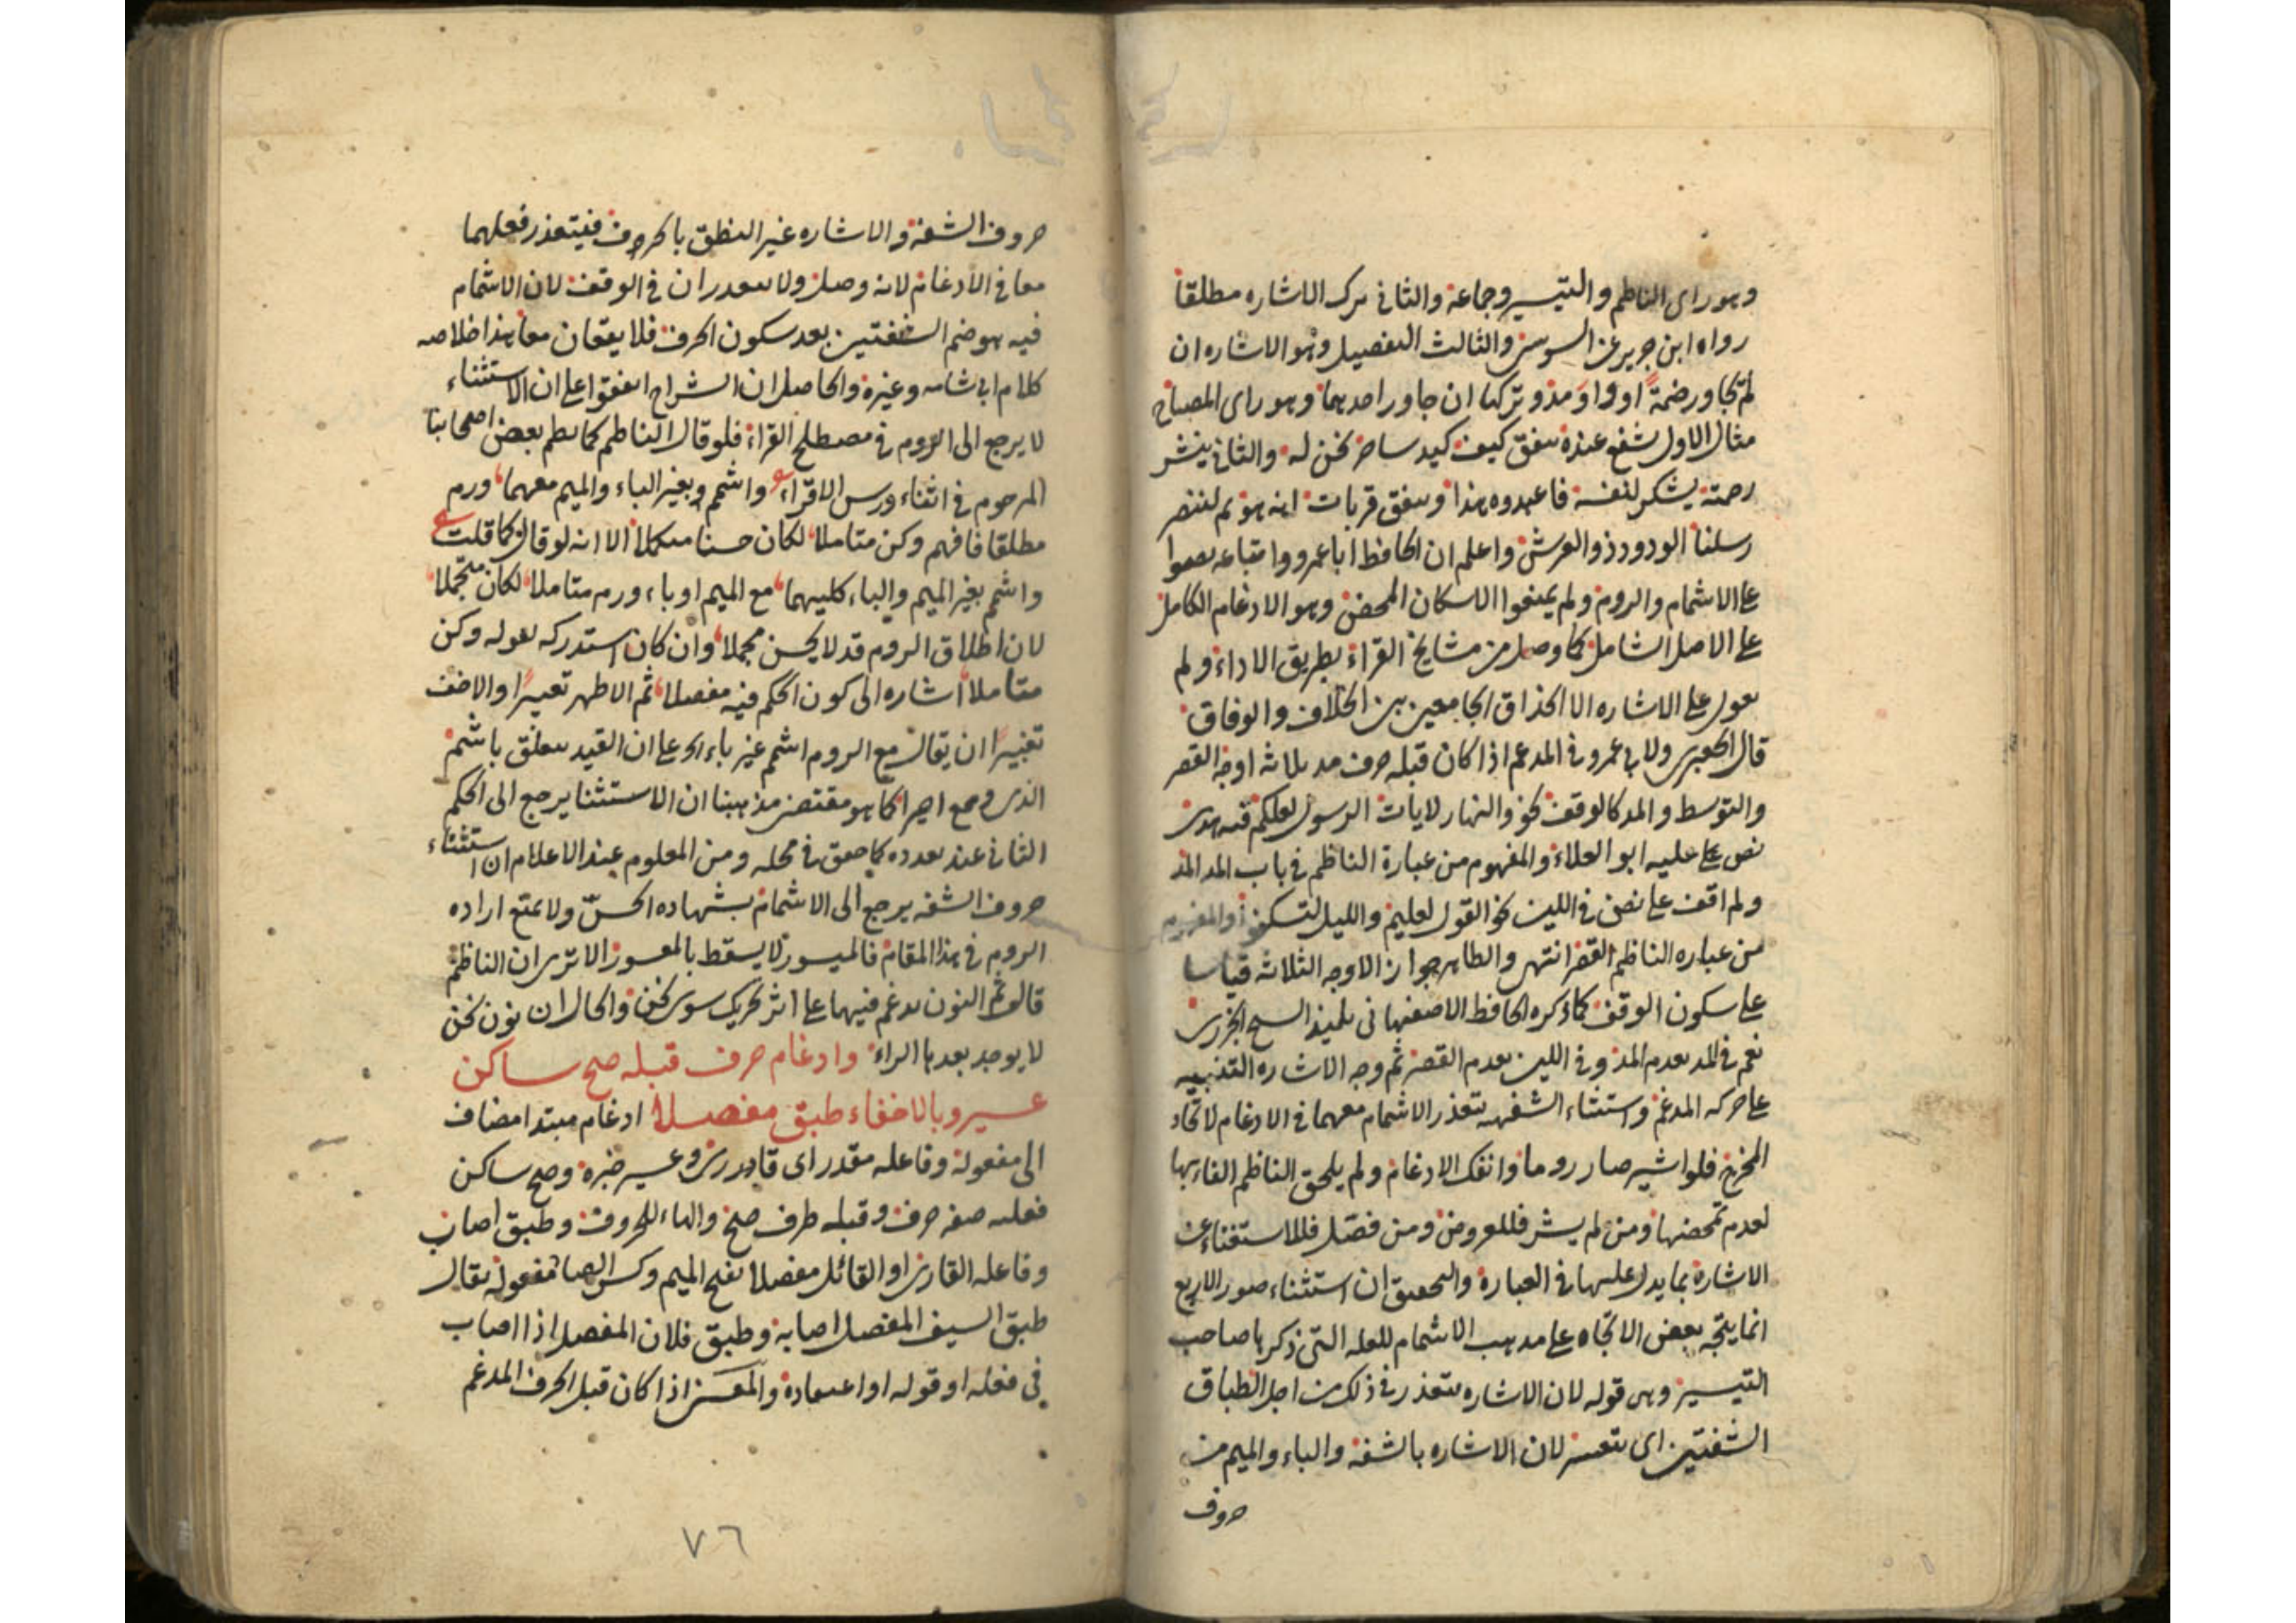 وهو راى الناظم والتيسير وجماعة والثانى ترك الاشاره مطلقا
رواه ابن جرير عن السوسى والثالث التفصيل وهو الاشاره ان
لم تجاور ضمة او واوا مدو تركها ان جاور احدهما وهو راى المصباح
مثال الاول شفع عنده ينفق كيف كيد ساحر نحن له والثانى ينشر
رحمته يشكر لنفسه فاعبدوه هذا وينفق قربات انه هو ثم لننصر
رسلنا الودود ذو العرش واعلم ان الحافظ ابا عمرو واتباعه
على الاشمام والروم ولم يمنعوا الاسكان المحض وهو الادغام الكامل
على الاصل الشامل كما وصل من مشايخ القراء بطريق الاداء ولم
يعول على الاشاره الا الحذاق الجامعين بين الخلاف والوفاق
قال الجعبرى ولابى عمرو فى المدغم اذا كان قبله حرف مد ثلاثة اوجه القصر
والتوسط والمد كالوقف نحو والنهار لايات الرسول لعلكم فيه هدى
نص على عليه ابو العلاء والمفهوم من عبارة الناظم فى باب المد المد
ولم اقف على نص فى اللين نحو القول لعليم والليل لتسكنوا والمفهوم
من عباره الناظم القصر انتهى والظاهر جواز الاوجه الثلاثه قياسا
على سكون الوقف كما ذكره الحافظ الاصفهانى تلميذ الشيخ الجزرى
نعم فى المد يقدم المد وفى اللين يقدم القصر ثم وجه الاشاره التنبيه
على حركه المدغم واستثناء الشفهيه لتعذر الاشمام معهما فى الادغام لاتحاد
المخرج فلو اشير صار روما وانفك الادغام ولم يلحق الناظم الفاء بها
لعدم تمحضها ومن لم يشر فللعروض ومن فصل فللاستغناء عن
الاشارة بما يدل عليها فى العبارة والتحقيق ان استثناء صور الاربع
انما يتجه بعض الاتجاه على مذهب الاشمام للعله التى ذكرها صاحب
التيسير وهى قوله لان الاشاره تتعذر فى ذلك من اجل انطباق
الشفتين اى تتعسر لان الاشاره بالشفة والباء والميم من
حروف
حروف الشفة والاشاره غير النطق بالحروف فيتعذر فعلهما
معا فى الادغام لانه وصل ولا يتعذران فى الوقف لان الاشمام
فيه هو ضم الشفتين بعد سكون الحرف فلا يقعان معا هذا خلاصه
كلام ابى شامه وغيره والحاصل ان الشراح اتفقوا على ان الاستثناء
لا يرجع الى الروم فى مصطلح القراء فلو قال الناظم كما نظم بعض اصحابنا
المرحوم فى اثناء درس الاقراء ع واشمم وبغير الباء والميم معهما ورم
مطلقا فافهم وكن متاملا لكان حسنا مكملا الا انه لو قال كما قلت ع
واشمم بغير الميم والباء كليهما مع الميم او باء ورم متاملا لكان متجملا
لان اطلاق الروم قد لا يحسن مجملا وان كان استدركه بقوله وكن
متاملا اشاره الى كون الحكم فيه مفصلا ثم الاظهر تعبيرا والاخف
تغييرا ان يقال مع الروم اشمم غير باء الخ على ان القيد يتعلق باشمم
الذى وقع اخيرا كما هو مقتضى مذهبنا ان الاستثنا يرجع الى الحكم
الثانى عند تعدده كما حقق فى محله ومن المعلوم عند الاعلام ان استثناء
حروف الشفه يرجع الى الاشمام بشهاده الحس ولا يمتنع اراده
الروم فى هذا المقام فالميسور لا يسقط بالمعسور الا ترى ان الناظم
قال وثم النون تدغم فيها على اثر تحريك سوى نحن والحال ان نون نحن
لا يوجد بعدها الراء وادغام حرف قبله صح ساكن
عسير وبالاخفاء طبق مفصلا ادغام مبتدا مضاف
الى مفعوله وفاعله مقدر اى قادررى وعسير خبره وصح ساكن
فعليه صفه حرف وقبله ظرف صح والهاء للحروف وطبق اصاب
وفاعله القارى او القائل مفصلا بفتح الميم وكسر الصاد مفعوله يقال
طبق السيف المفصل اصابه وطبق فلان المفصل اذا اصاب
فى فعله او قوله او اعتقاده والمعنى اذا كان قبل الحرف المدغم
٧٦